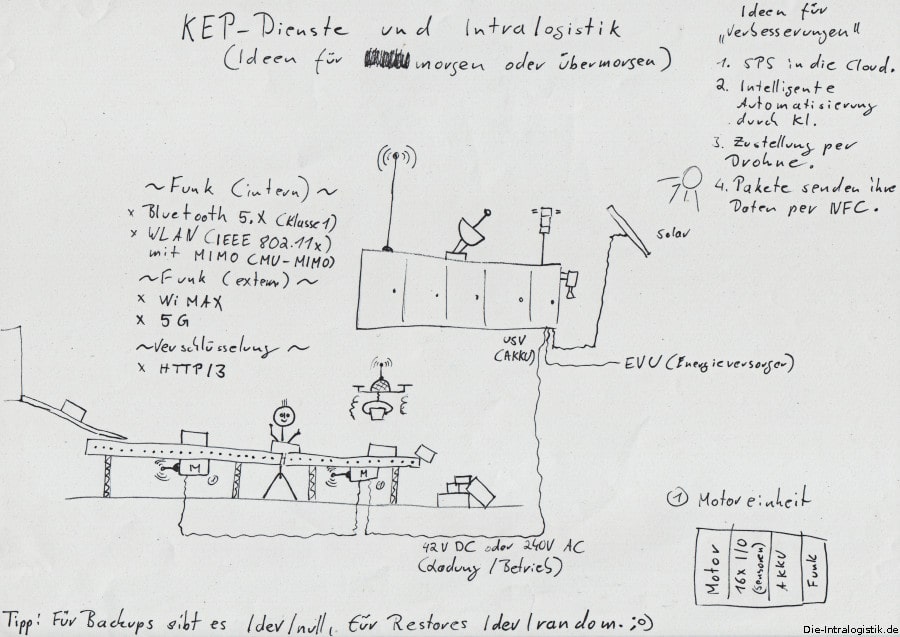 KEP-Dienste und Intralogistik
(Ideen für morgen oder übermorgen)
Ideen für
„Verbesserungen"
1. SPS in die Cloud.
2. Intelligente
Automatisierung
durch KI.
3. Zustellung per
Drohne.
4. Pakete senden ihre
Daten per NFC.
~Funk (intern)~
x Bluetooth 5.X (Klasse 1)
x WLAN (IEEE 802.11x)
mit MIMO (MU-MIMO)
~Funk (extern)~
x WiMAX
x 5G
~Verschlüsselung~
x HTTP/3
Solar
USV
(AKKU)
EVU (Energieversorger)
M
1
M
1
42V DC oder 240V AC
(Ladung/Betrieb)
1 Motoreinheit
Motor
16x I/O
(Sensoren)
AKKU
Funk
Tipp: Für Backups gibt es /dev/null, für Restores /dev/random. ;o)
Die-Intralogistik.de